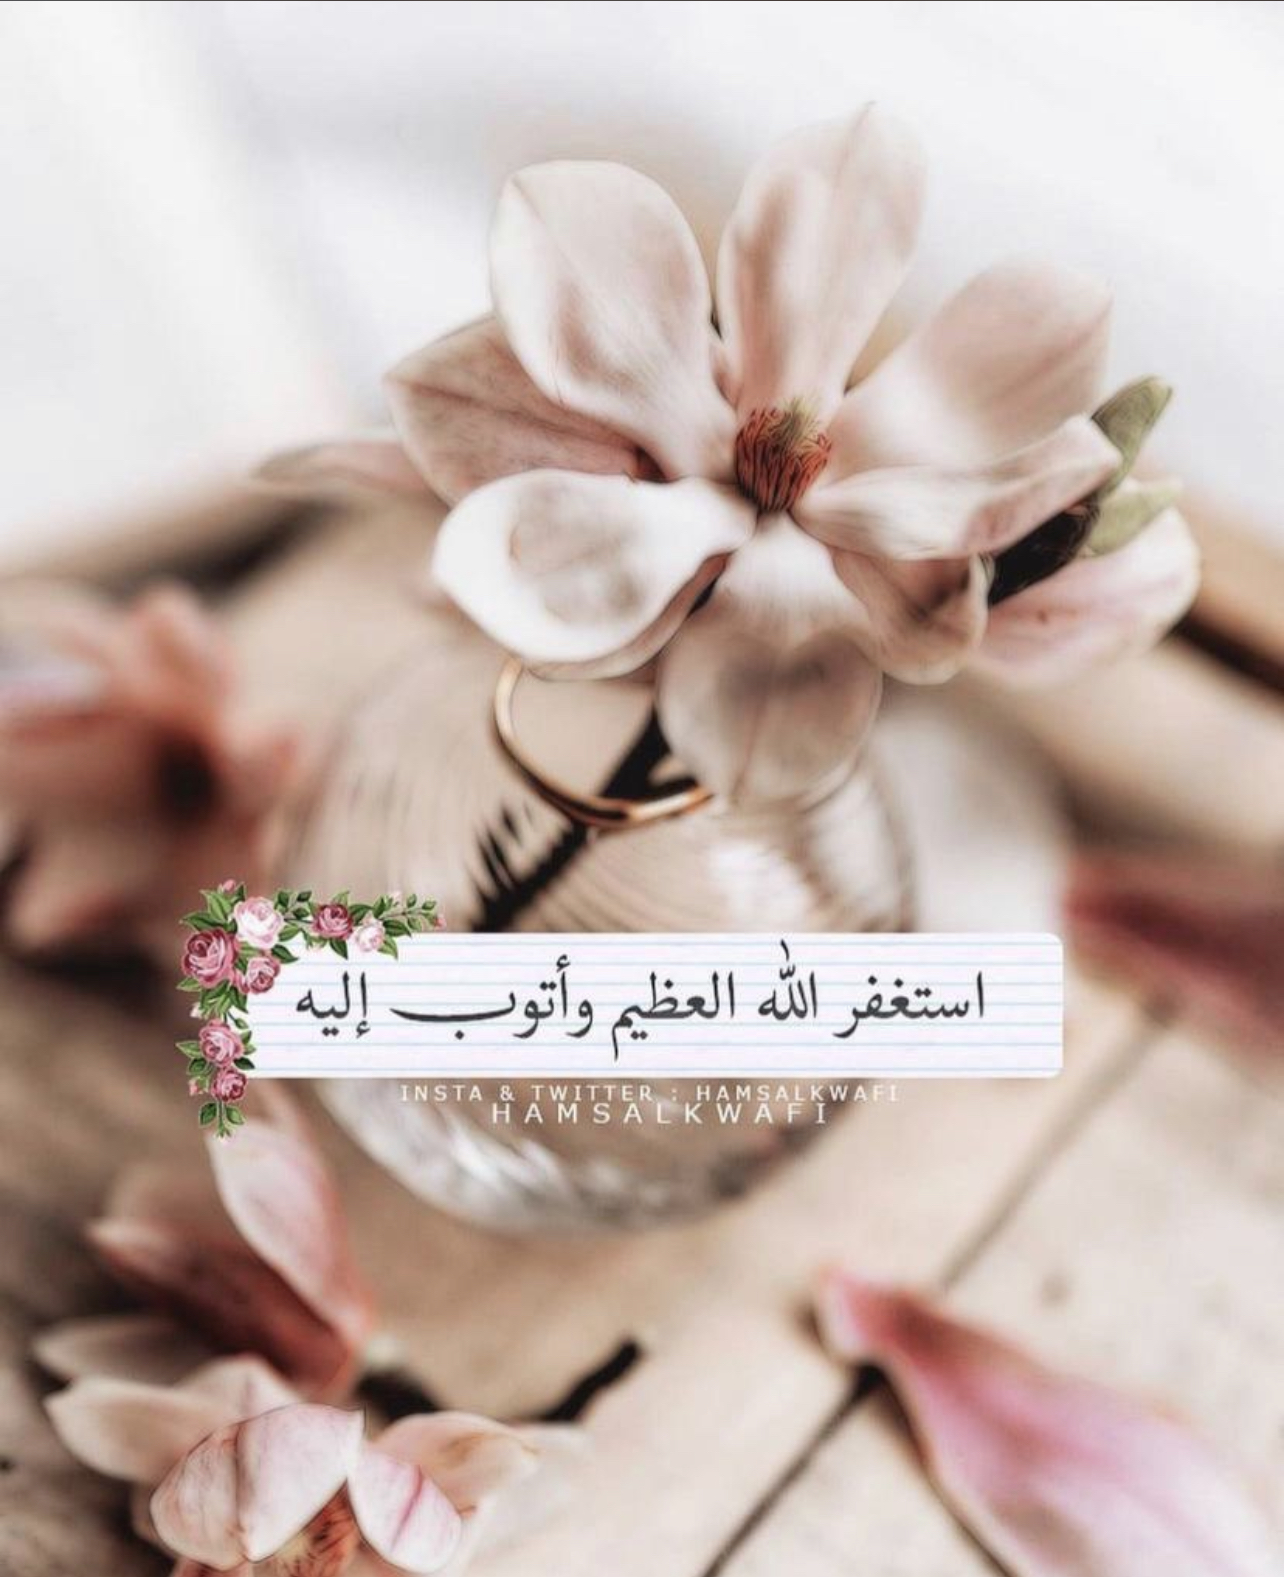 استغفر الله العظيم وأتوب إليه
INSTA & TWITTER : HAMSALKWAFI
HAMSALKWAFI